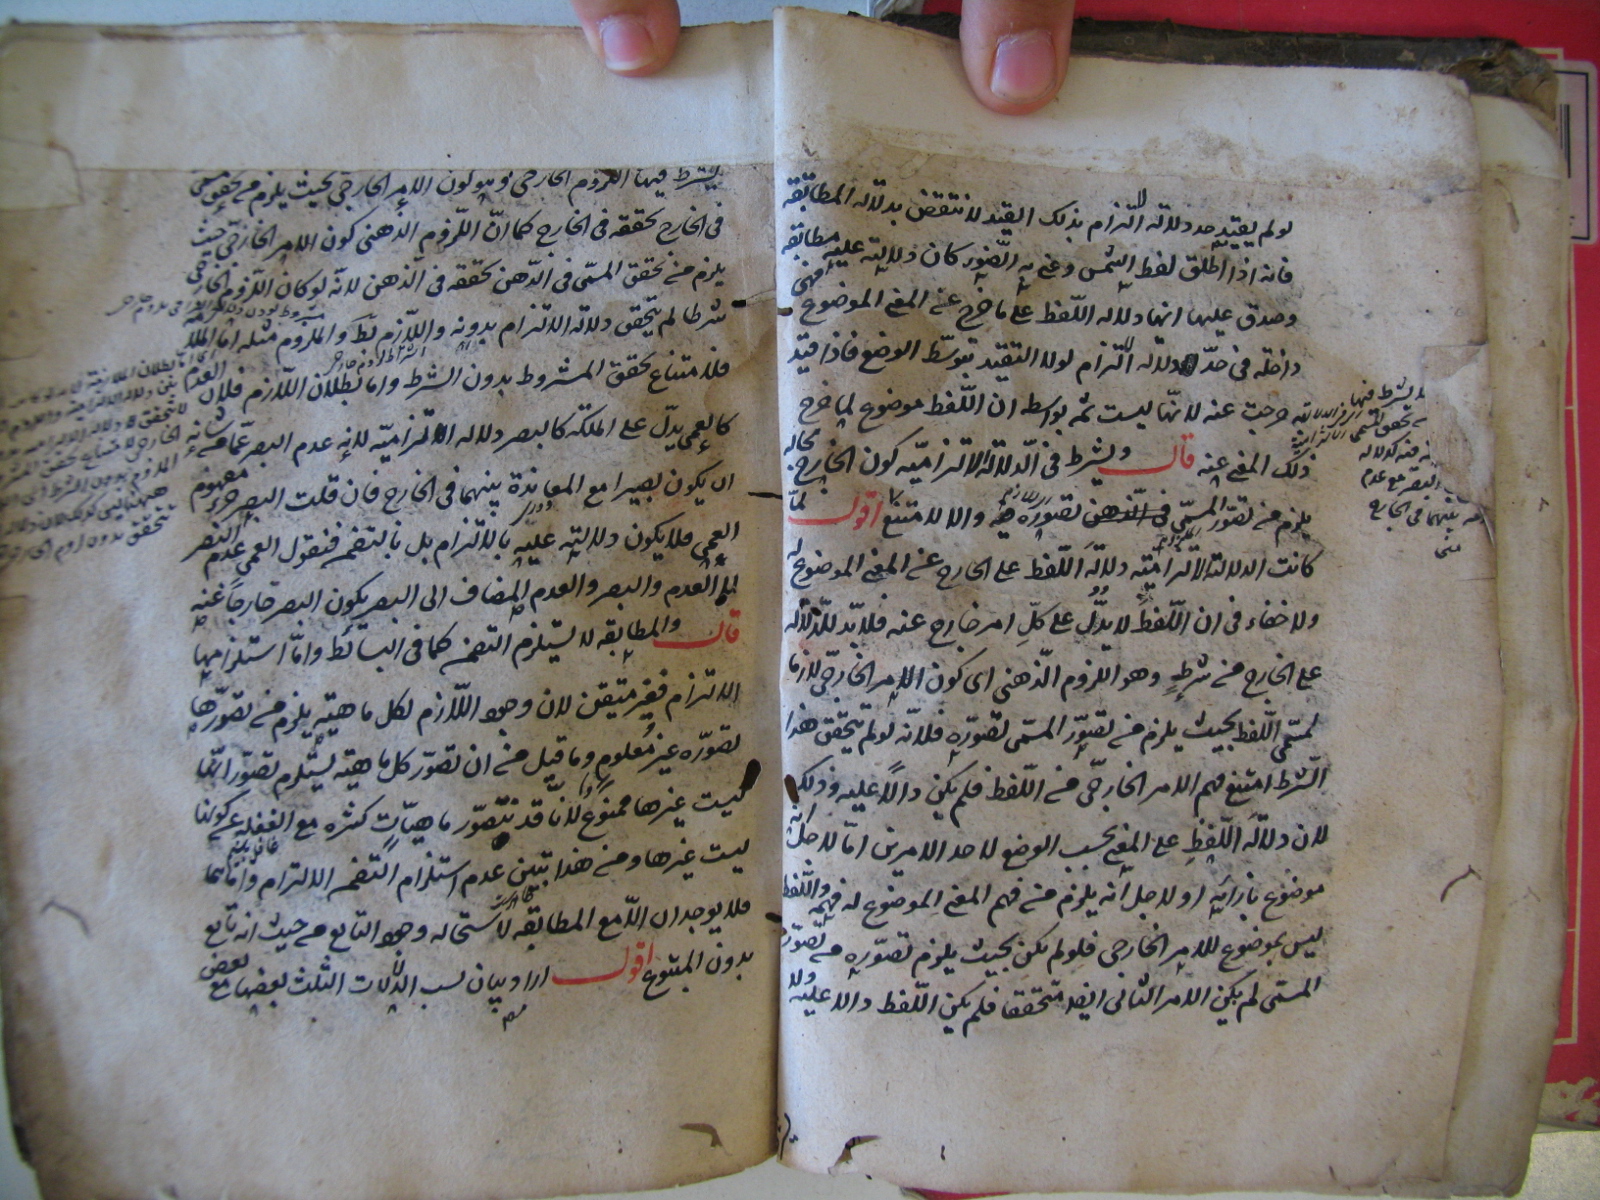 لو لم يقيد حد دلالة الالتزام بذلك القيد لانتقض بدلالة المطابقة
فانه اذا اطلق لفظ الشمس وعنى به الضوء كان دلالته عليه مطابقة
وصدق عليها انها دلالة اللفظ على ما خرج عن المعنى الموضوع فهى
داخلة فى حد دلالة الالتزام لولا التقييد بتوسط الوضع فاذا قيد
خرجت عنه لانها ليست ثم بواسطة ان اللفظ موضوع لما خرج
ذلك المعنى عنه قال ويشترط فى الدلالة الالتزامية كون الخارج بحالة
يلزم من تصور المسمى فى الذهن تصوره فيه والا لامتنع اقول لما
كانت الدلالة الالتزامية دلالة اللفظ على الخارج عن المعنى الموضوع له
ولا خفاء فى ان اللفظ لا يدل على كل امر خارج عنه فلا بد للدلالة
على الخارج من شرط وهو اللزوم الذهنى اى كون الامر الخارجى لازما
لمسمى اللفظ بحيث يلزم من تصور المسمى تصوره فلانه لو لم يتحقق هذا
الشرط امتنع فهم الامر الخارجى من اللفظ فلم يكن دالا عليه وذلك
لان دلالة اللفظ على المعنى بحسب الوضع لاحد الامرين اما لاجل انه
موضوع بازائه او لاجل انه يلزم من فهم المعنى الموضوع له فهمه واللفظ
ليس بموضوع للامر الخارجى فلو لم يكن بحيث يلزم تصوره من تصور
المسمى لم يكن الامر الثانى ايضا متحققا فلم يكن اللفظ دالا عليه ولا
يشترط فيها اللزوم الخارجى وهو كون الامر الخارجى بحيث يلزم من تحقق المسمى
فى الخارج تحققه فى الخارج كما ان اللزوم الذهنى كون الامر الخارجى بحيث
يلزم من تحقق المسمى فى الذهن تحققه فى الذهن لانه لو كان اللزوم الخارجى
شرطا لم يتحقق دلالة الالتزام بدونه واللازم بط والملزوم مثله اما الملازمة
فلامتناع تحقق المشروط بدون الشرط واما بطلان اللازم فلان العدم
كالعمى يدل على الملكة كالبصر دلالة الالتزامية لانه عدم البصر عما من شانه
ان يكون بصيرا مع المعاندة بينهما فى الخارج فان قلت البصر جزء مفهوم
العمى فلا يكون دلالته عليه بالالتزام بل بالتضمن فنقول العمى عدم البصر
لا العدم والبصر والعدم المضاف الى البصر يكون البصر خارجا عنه
قال والمطابقة لا تستلزم التضمن كما فى البسائط واما استلزامها
الالتزام فغير متيقن لان وجود اللازم لكل ماهية يلزم من تصورها
تصوره غير معلوم وما قيل من ان تصور كل ماهية يستلزم تصور انها
ليست غيرها فممنوع لانا قد نتصور ماهيات كثيرة مع الغفلة عن كونها
ليست غيرها ومن هذا تبين عدم استلزام التضمن الالتزام واما هما
فلا يوجدان الا مع المطابقة لاستحالة وجود التابع من حيث انه تابع
بدون المتبوع اقول اراد بيان نسب الدلالات الثلث بعضها مع بعض